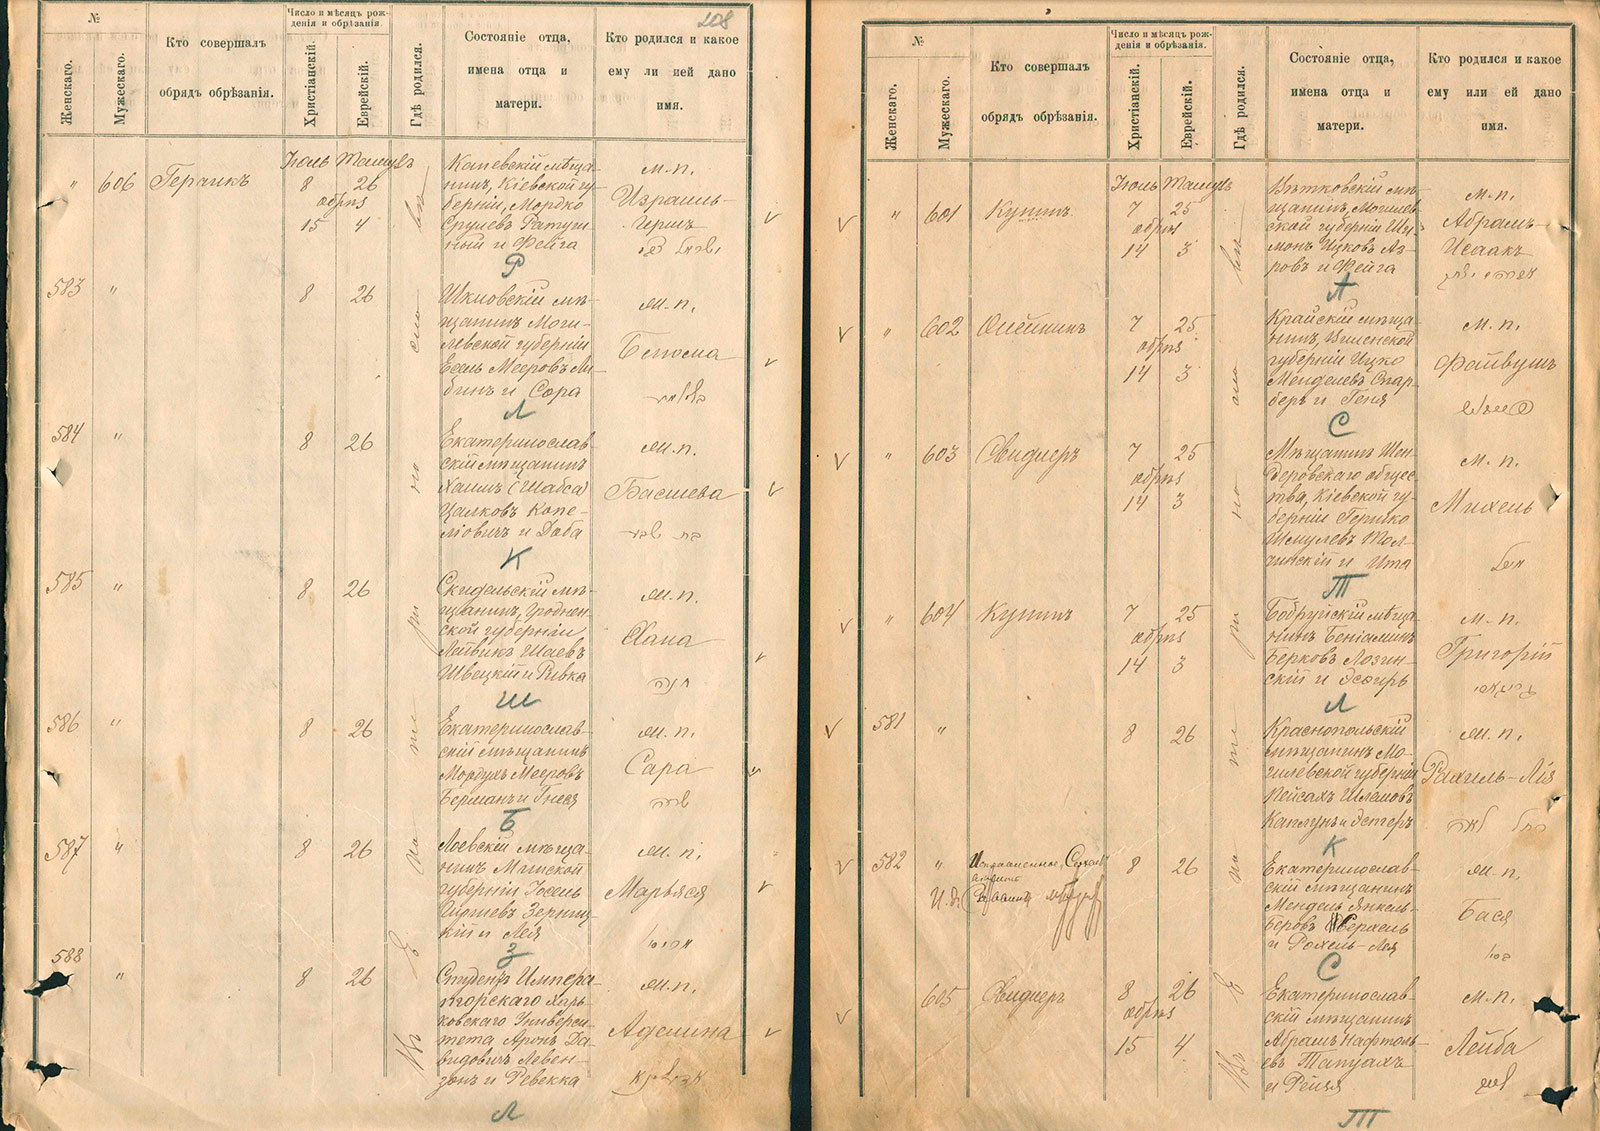 208
№
Женскаго.
Мужескаго.
Кто совершалъ
обрядъ обрѣзанія.
Число и мѣсяцъ рож-
денія и обрѣзанія.
Христіанскій.
Еврейскій.
Гдѣ родился.
Состояніе отца,
имена отца и
матери.
Кто родился и какое
ему ли ией дано
имя.
Іюль Тамузъ
" 606
8 26
обрѣз
15 4
Каневскій мѣща-
нинъ, Кіевской гу-
берніи, Мордко
Срулевъ
ный и Фейга
м. п.
Израиль-
Гершъ
Р
583 "
8 26
Шкловскій мѣ-
щанинъ Моги-
левской губерніи
Мееровъ Ли-
бинъ и Сора
м. п.
Л
584 "
8 26
Екатеринослав-
скій мѣщанинъ
Хаимъ (Шабса)
Цалковъ Копе-
ліовичъ и Доба
м. п.
Басшева
בת שבע
К
585 "
8 26
Скидельскій мѣ-
щанинъ, Гроднен
ской губерніи
Лейвикъ Шаевъ
Швецкій и Ривка
м. п.
Хана
חנה
Ш
586 "
8 26
Екатеринослав-
скій мѣщанинъ
Мордухъ Мееровъ
Берманъ и Гнеся
м. п.
Сара
שרה
Б
587 "
8 26
Лоевскій мѣща-
нинъ Минской
губерніи
Зерниц-
кій и Лея
м. п.
Марьяся
З
588 "
8 26
Студентъ Импера-
торскаго Харь-
ковскаго Универси-
тета Аронъ Да-
видовичъ Левен-
зонъ и Ревекка
м. п.
Аделина
Л
№
Женскаго.
Мужескаго.
Кто совершалъ
обрядъ обрѣзанія.
Число и мѣсяцъ рож-
денія и обрѣзанія.
Христіанскій.
Еврейскій.
Гдѣ родился.
Состояніе отца,
имена отца и
матери.
Кто родился и какое
ему или ей дано
имя.
Іюль Тамузъ
" 601 Кунинъ
7 25
обрѣз
14 3
Вѣтковскій мѣ-
щанинъ, Могилев
ской губерніи Ши-
монъ Ицковъ Аз-
ровъ и Фейга
м. п.
Абрамъ-
Исаакъ
אברהם יצחק
А
" 602
7 25
обрѣз
14 3
Крайскій мѣща-
нинъ, Виленской
губерніи Ицко
Менделевъ Спар-
беръ и Геня
м. п.
Файвушъ
С
" 603 Свидлеръ
7 25
обрѣз
14 3
Мѣщанинъ Шен-
деровскаго общес-
тва, Кіевской гу-
берніи Гершко
Шмулевъ Тол-
чинскій и Ита
м. п.
Михель
Т
" 604 Кунинъ
7 25
обрѣз
14 3
Бобруйскій мѣща-
нинъ Беніаминъ
Берковъ Лозин-
скій и Эсфирь
м. п.
Григорій
Л
581 "
8 26
Краснопольскій
мѣщанинъ Мо-
гилевской губерніи
Пейсахъ Шлемовъ
Каплунъ и Эстеръ
м. п.
Рахиль-Лія
רחל לאה
К
582 "
8 26
И. д.
Екатеринослав-
скій мѣщанинъ
Мендель Янкель-
Беровъ
и Рохель-Лея
м. п.
Бася
С
605 Свидлеръ
8 26
обрѣз
15 4
Екатеринослав-
скій мѣщанинъ
Абрамъ Нафтоль-
евъ Тапуахъ
и Рейзя
м. п.
Лейба
Т